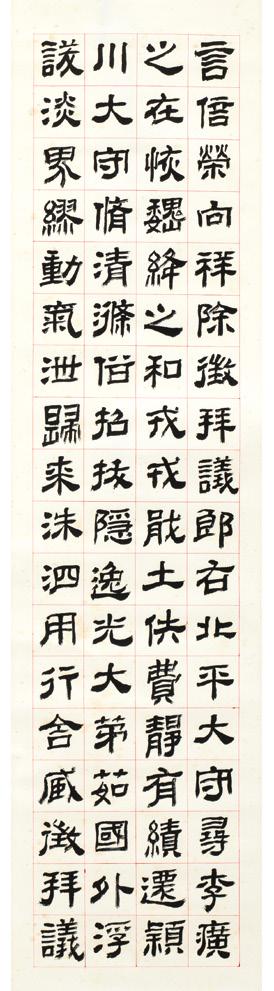 言信榮向祥除徵拜議郎右北平大守尋李癀
之在恢魏絳之和戎戎戢土佚費靜有績遷穎
川大守脩清滌俗招拔隱逸光大苐茹國外浮
訞淡界繆動氣泄歸来洙泗用行舍臧徵拜議